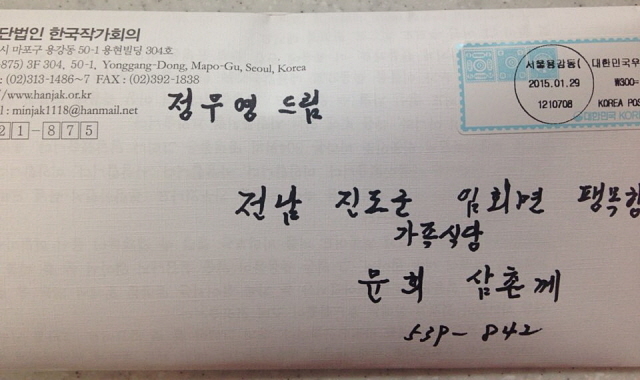 단법인 한국작가회의
시 마포구 용강동 50-1 용현빌딩 304호
-875) 3F 304, 50-1, Yonggang-Dong, Mapo-Gu, Seoul, Korea
: (02)313-1486~7 FAX : (02)392-1838
//www.hanjak.or.kr
l : minjak1118@hanmail.net
21-875
정무영 드림
서울용강동(
2015.01.29
1210708
대한민국우
₩300-
KOREA POS
대한민국 KOREA
전남 진도군 임회면 팽목항
가족식당
문희 삼촌께
539-842